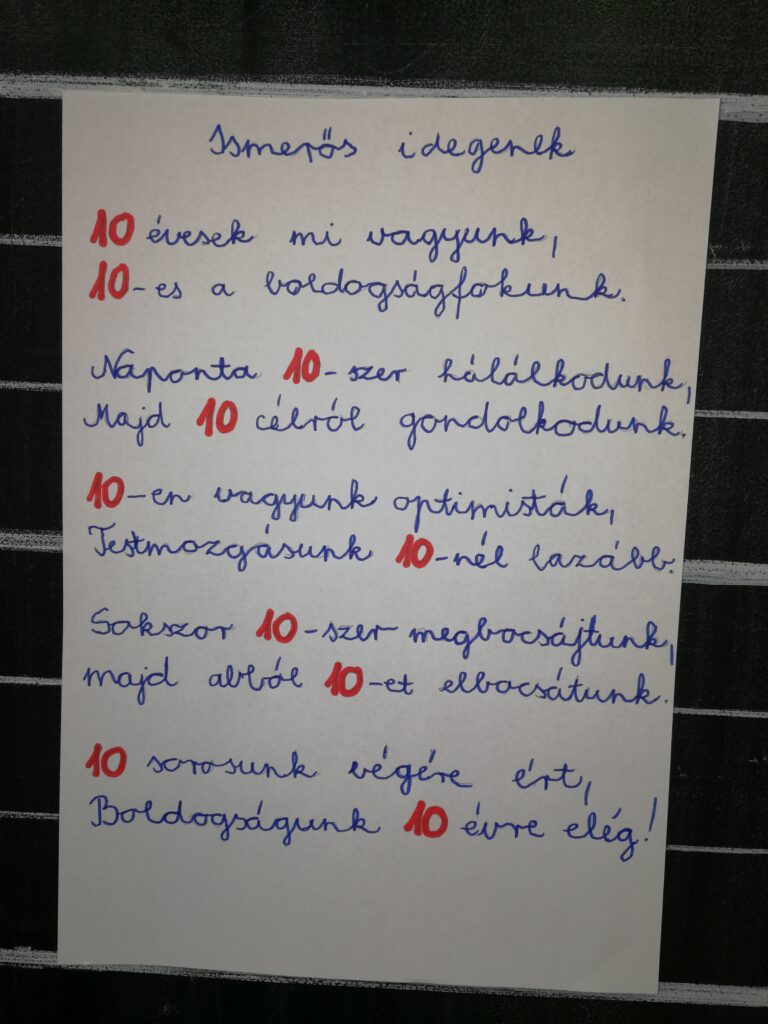 Ismerős idegenek
10 évesek mi vagyunk,
10-es a boldogságfokunk.
Naponta 10-szer hálálkodunk,
Majd 10 célról gondolkodunk.
10-en vagyunk optimisták,
Testmozgásunk 10-nél lazább.
Sokszor 10-szer megbocsájtunk,
majd abból 10-et elbocsátunk.
10 sorosunk végére ért,
Boldogságunk 10 évre elég!